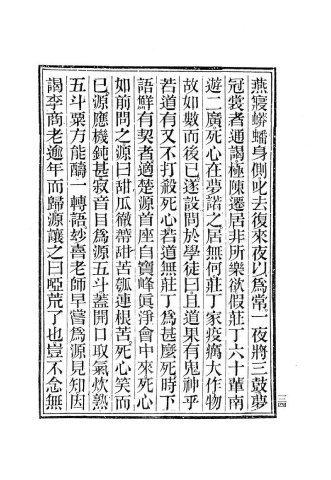 燕寢蟒蟠身側叱去復來夜以爲常一夜將三鼓夢
冠裳者通謁極陳遷居非所樂欲假莊丁六十輩南
遊二廣死心在夢諾之居無何莊丁家疫癘大作物
故如數而後已遂設問於學徒曰且道果有鬼神乎
若道有又不打殺死心若道無莊丁爲甚麼死時下
語鮮有契者適楚源首座自寶峰眞淨會中來死心
如前問之源曰甜瓜徹蒂甜苦瓠連根苦死心笑而
巳源應機鈍甚寂音目爲源五斗蓋開口取氣炊熟
五斗粟方能醻一轉語妙喜老師早嘗爲源見知因
謁李商老逾年而歸源讓之曰啞荒了也豈不念無
三四